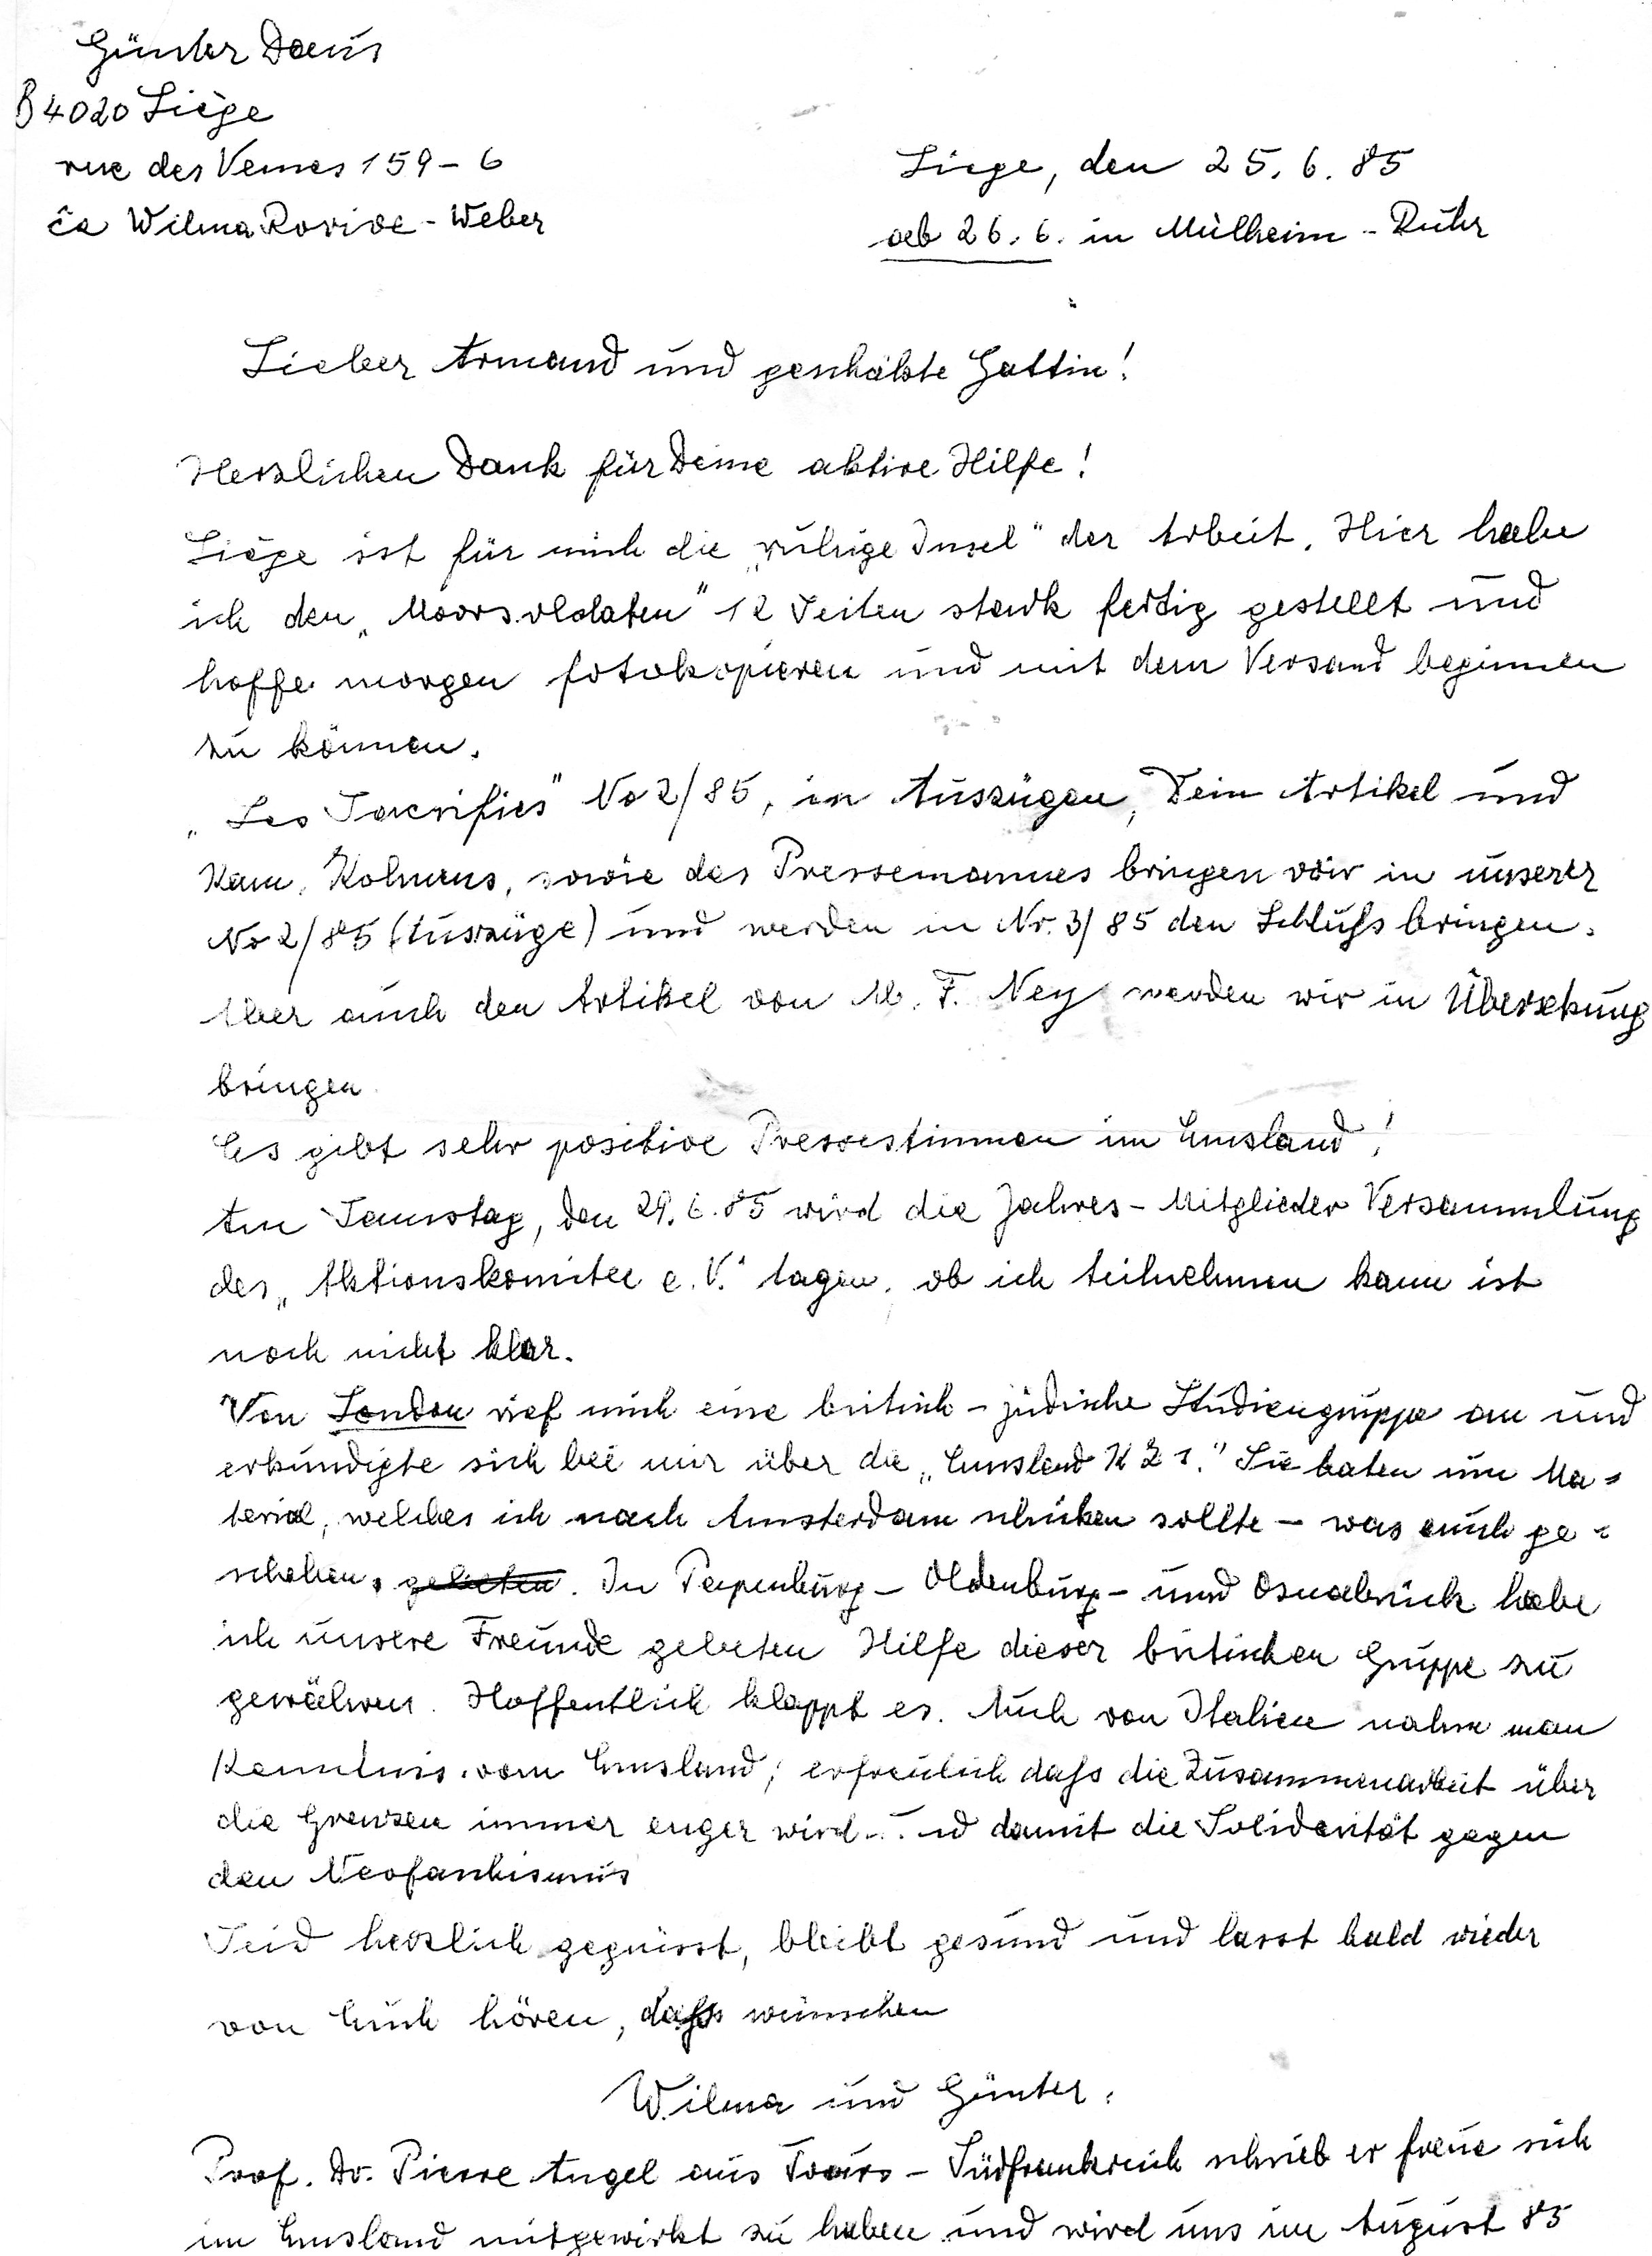 Günter Daus
B 4020 Liège
rue des Vennes 159 - 6
c̄a Wilma Rovive - Weber
Liege, den 25. 6. 85
ab 26. 6. in Mülheim - Ruhr
Lieber Armand und geschätzte Gattin!
Herzlichen Dank für Deine aktive Hilfe!
Liège ist für mich die „ruhige Insel" der Arbeit. Hier habe
ich den „Moorsoldaten" 12 Seiten stark fertig gestellt und
hoffe morgen fotokopieren und mit dem Versand beginnen
zu können.
„Les Sacrifies" No 2/85, in Auszügen, Dein Artikel und
Kam. sowie des Pressemannes bringen wir in unserer
No 2/85 (Auszüge) und werden in Nr. 3/85 den Schluß bringen.
Aber auch den Artikel von M. F. Ney werden wir in Übersetzung
bringen
Es gibt sehr positive Pressestimmen im Emsland!
Am Samstag, den 29. 6. 85 wird die Jahres - Mitglieder Versammlung
des „Aktionskomitee e. V." tagen. ob ich teilnehmen kann ist
noch nicht klar.
Von London rief mich eine britisch - jüdische Studiengruppe an und
erkundigte sich bei mir über die „Emsland KZ s." Sie baten um Ma-
terial, welches ich nach Amsterdam schicken sollte - was auch ge-
schehen. gebeten. In Papenburg - Oldenburg - und Osnabrück habe
ich unsere Freunde gebeten Hilfe dieser britischen Gruppe zu
gewähren. Hoffentlich klappt es. Auch von Italien nahm man
Kenntniss vom Emsland; erfreulich daß die Zusammenarbeit über
die Grenzen immer enger wird und damit die Solidarität gegen
den Neofaschismus
Seid herzlich gegrüsst, bleibt gesund und lasst bald wieder
von Euch hören, daß wünschen
Wilma und Günter.
Prof. Dr. Pierre Angel aus Tours - Südfrankreich schrieb er freue sich
im Emsland mitgewirkt zu haben und wird uns im August 85